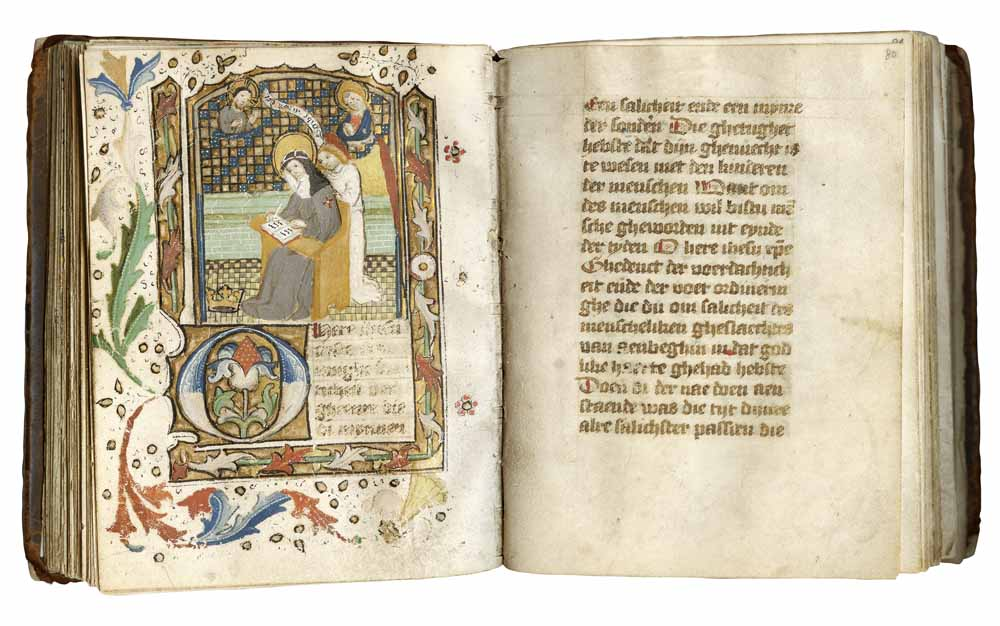 ghenre die
di mynnen
80
Een salicheit ende een mynre
der sonden Die ghetughet
hebste dat dijn ghenuecht is
te wesen met den kinderen
der menschen Want om
des menschen wil bistu mē
sche gheworden int eynde
der tyden O here iesu xp̄e
Ghedenct der voerdachtich
eit ende der voer ordinerin
ghe die du om salicheit des
menscheliken gheslaechtes
van aenbeghin in dat god
like herte ghehad hebste
Doen di der nae doen aen
staende was die tijt dijnre
alre salichster passien die